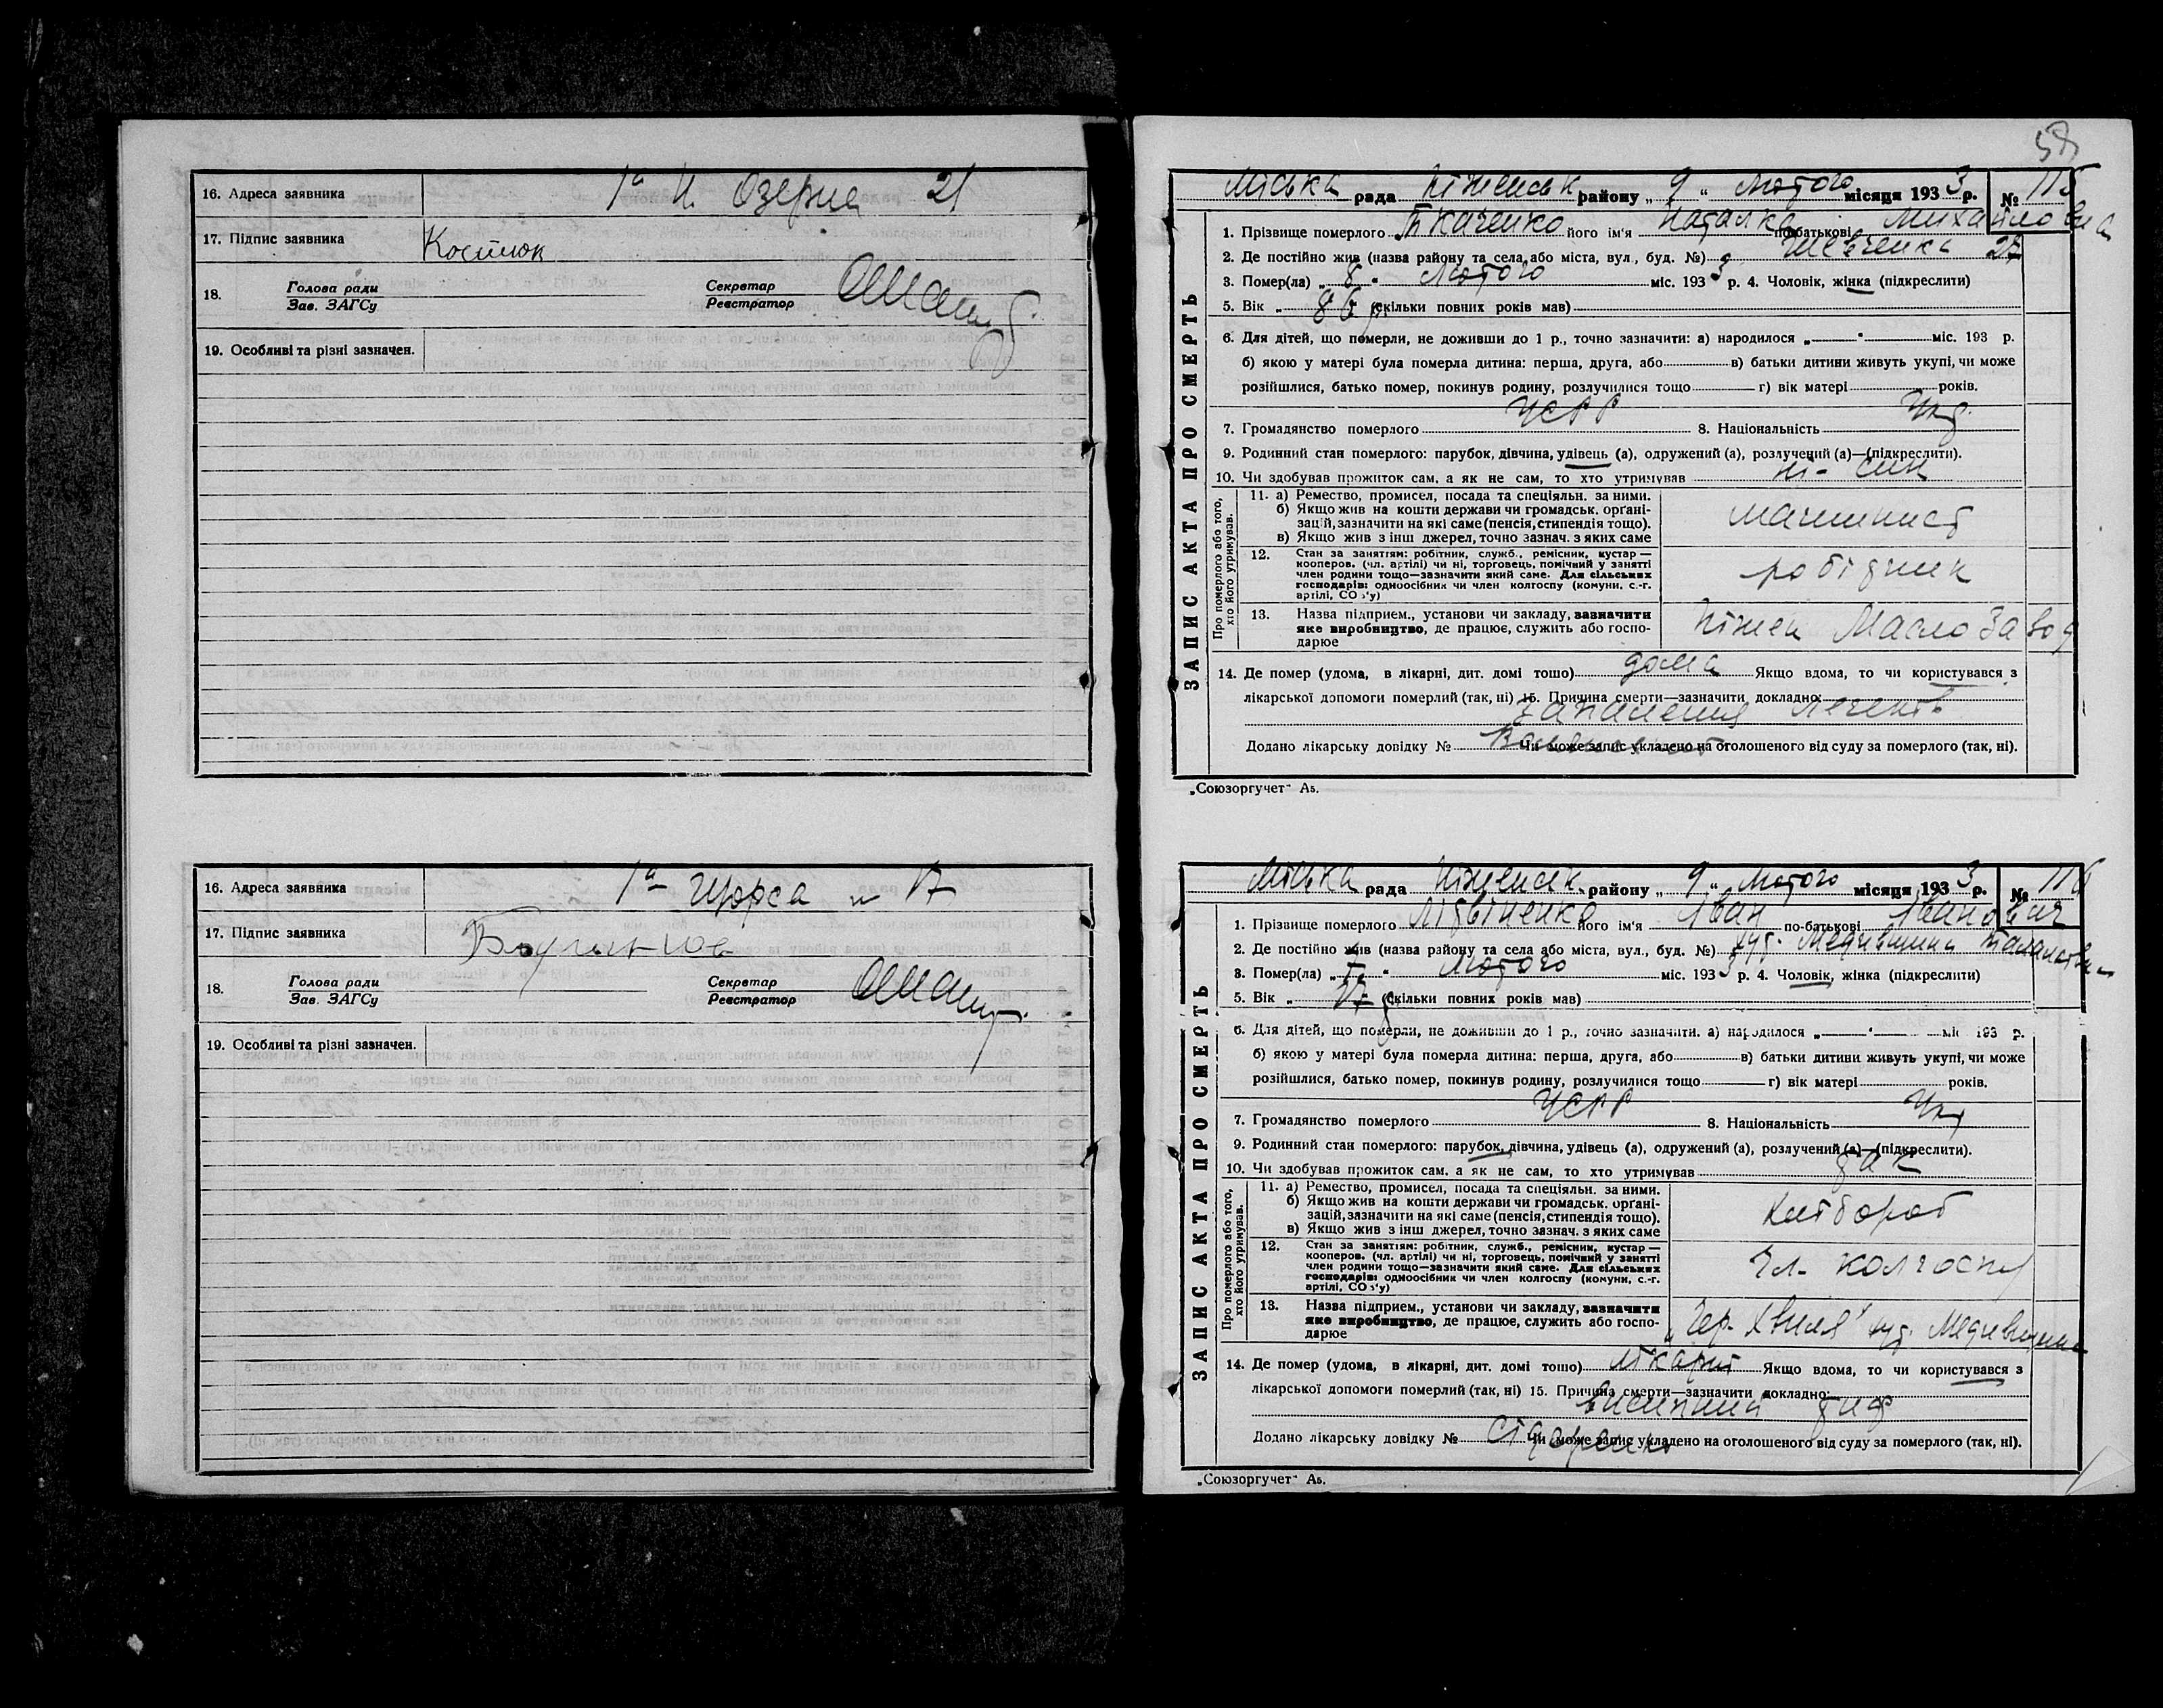 16. Адреса заявника 1а Н. Озерна 21
17. Підпис заявника Костюк
18. Голова ради Зав. ЗАГСу Секретар Реєстратор
19. Особливі та різні зазначен.
16. Адреса заявника 1а Щорса 17
17. Підпис заявника
18. Голова ради Зав. ЗАГСу Секретар Реєстратор
19. Особливі та різні зазначен.
ЗАПИС АКТА ПРО СМЕРТЬ
Міська рада Ніженськ району „ 9 “ Лютого місяця 1933 р. № 115
1. Прізвище померлого Ткаченко його ім'я Наталка по-батькові Михайловна
2. Де постійно жив (назва району та села або міста, вул., буд. №) Шевченка 27
3. Помер(ла) „ 8 “ Лютого міс. 1933 р. 4. Чоловік, жінка (підкреслити)
5. Вік „ 86 р. (скільки повних років мав)
6. Для дітей, що померли, не доживши до 1 р., точно зазначити: а) народилося „ “ міс. 193 р.
б) якою у матері була померла дитина: перша, друга, або в) батьки дитини живуть укупі, чи може
розійшлися, батько помер, покинув родину, розлучилися тощо г) вік матері років.
7. Громадянство померлого УСРР 8. Національність Укр.
9. Родинний стан померлого: парубок, дівчина, удівець (а), одружений (а), розлучений (а)—(підкреслити).
10. Чи здобував прожиток сам, а як не сам, то хто утримував ні - син
Про померлого або того, хто його утримував.
11. а) Ремество, промисел, посада та спеціяльн. за ними.
б) Якщо жив на кошти держави чи громадськ. орґані-
зацій, зазначити на які саме (пенсія, стипендія тощо).
в) Якщо жив з інш джерел, точно зазнач. з яких саме
машиніст
12. Стан за занятям: робітник, служб., ремісник, кустар —
кооперов. (чл. артілі) чи ні, торговець, помічний у занятті
член родини тощо—зазначити який саме. Для сільських
господарів: одноосібник чи член колгоспу (комуни, с.-г.
артілі, СОЗ'у)
робітник
13. Назва підприєм., установи чи закладу, зазначити
яке виробництво, де працює, служить або госпо-
дарює
Ніжен Маслозавод
14. Де помер (удома, в лікарні, дит. домі тощо) дома Якщо вдома, то чи користувався з
лікарської допомоги померлий (так, ні) 15. Причина смерти—зазначити докладно:
запалення легенів
Додано лікарську довідку № Чи може запис укладено на оголошеного від суду за померлого (так, ні).
„Союзоргучет“ А5.
ЗАПИС АКТА ПРО СМЕРТЬ
Міська рада Ніженськ району „ 9 “ Лютого місяця 1933 р. № 116
1. Прізвище померлого Літвіненко його ім'я Іван по-батькові Іванович
2. Де постійно жив (назва району та села або міста, вул., буд. №) хут.
3. Помер(ла) „ “ Лютого міс. 1933 р. 4. Чоловік, жінка (підкреслити)
5. Вік „ 17 р. (скільки повних років мав)
6. Для дітей, що померли, не доживши до 1 р., точно зазначити: а) народилося „ “ міс. 193 р.
б) якою у матері була померла дитина: перша, друга, або в) батьки дитини живуть укупі, чи може
розійшлися, батько помер, покинув родину, розлучилися тощо г) вік матері років.
7. Громадянство померлого УСРР 8. Національність Укр
9. Родинний стан померлого: парубок, дівчина, удівець (а), одружений (а), розлучений (а)—(підкреслити).
10. Чи здобував прожиток сам, а як не сам, то хто утримував так
Про померлого або того, хто його утримував.
11. а) Ремество, промисел, посада та спеціяльн. за ними.
б) Якщо жив на кошти держави чи громадськ. орґані-
зацій, зазначити на які саме (пенсія, стипендія тощо).
в) Якщо жив з інш джерел, точно зазнач. з яких саме
хлібороб
12. Стан за занятям: робітник, служб., ремісник, кустар —
кооперов. (чл. артілі) чи ні, торговець, помічний у занятті
член родини тощо—зазначити який саме. Для сільських
господарів: одноосібник чи член колгоспу (комуни, с.-г.
артілі, СОЗ'у)
Чл. колгоспу
13. Назва підприєм., установи чи закладу, зазначити
яке виробництво, де працює, служить або госпо-
дарює
„Чер. Хвиля“ хут.
14. Де помер (удома, в лікарні, дит. домі тощо) лікарні Якщо вдома, то чи користувався з
лікарської допомоги померлий (так, ні) 15. Причина смерти—зазначити докладно:
висипний тиф
Додано лікарську довідку № Сідоренко Чи може запис укладено на оголошеного від суду за померлого (так, ні).
„Союзоргучет“ А5.